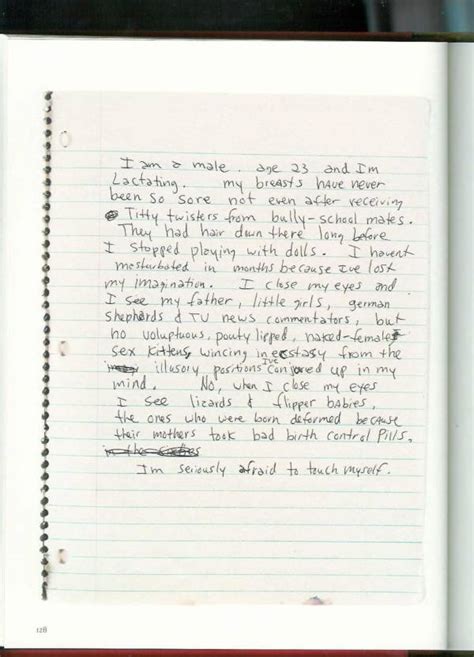 I am a male. age 23 and I'm
Lactating. my breasts have never
been so sore not even after receiving
Titty twisters from bully-school mates.
They had hair down there long before
I stopped playing with dolls. I havent
masturbated in months because I've lost
my imagination. I close my eyes and
I see my father, little girls, german
shepherds & TV news commentators, but
no voluptuous, pouty lipped, naked-female
sex kittens, wincing in ecstasy from the
illusory positions I've conjored up in my
mind. No, when I close my eyes
I see lizards & flipper babies,
the ones who were born deformed because
their mothers took bad birth control pills.
I'm seriously afraid to touch myself.
128